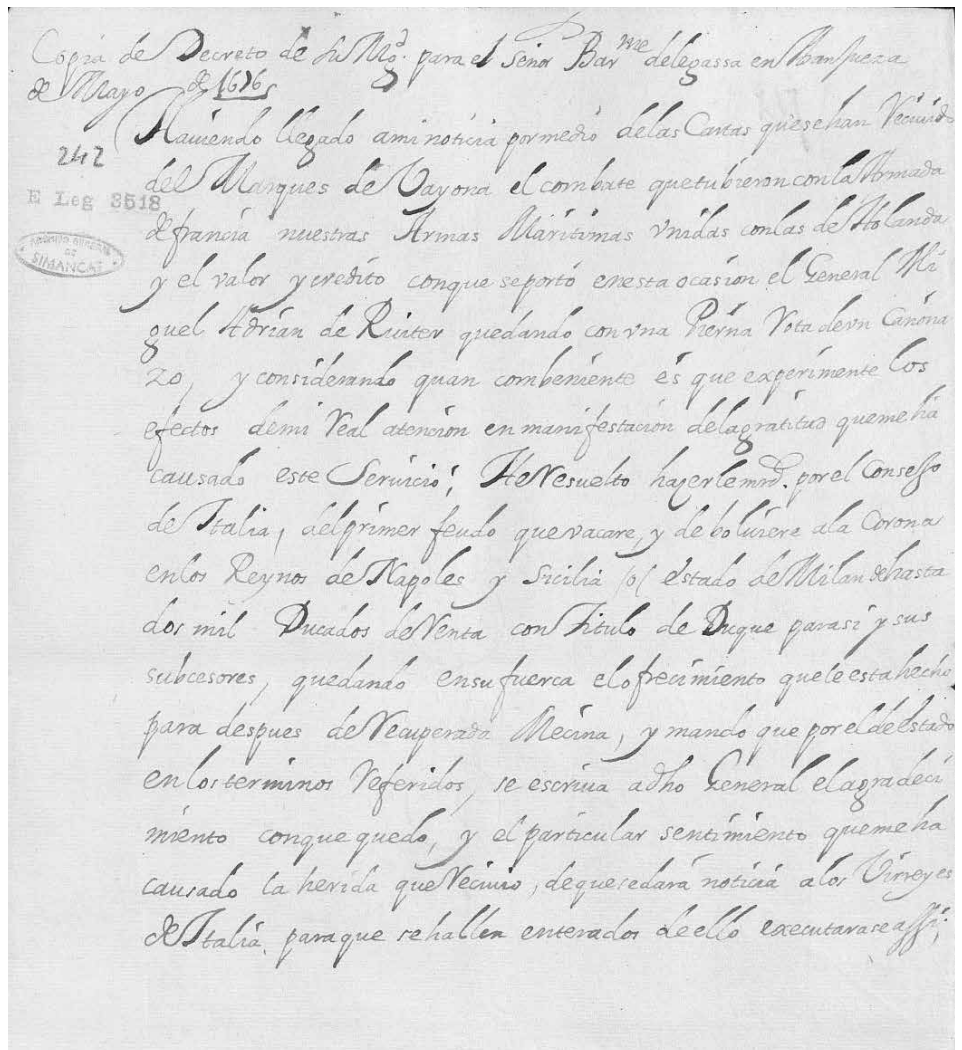 Copia de Decreto de su Mg.d para el señor Bar.me delegassa en Aranjuez a
de Mayo de 1676
Haviendo llegado ami noticia por medio delas Cartas quesehan Recivido
242
del Marques de Vayona el combate quetubieron con la Armada
E Leg 3518
de francia nuestras Armas Maritimas vnidas conlas de Holanda
ARCHIVO GENERAL
DE
SIMANCAS
y el valor y credito conque seportó enesta ocasion el General Mi
guel Adrian de Ruiter quedando con vna Pierna Rota deun Cañona
zo, y considerando quan combeniente es que experimente los
efectos demi Real atencion en manifestacion delagratitud quemeha
causado este Servicio; He Resuelto hazerle mrd. por el Conssejo
de Italia, del primer feudo que vacare, y de bolviere ala Corona
enlos Reynos de Napoles y Sicilia /o/ estado de Milan de hasta
dos mil Ducados de Renta con Titulo de Duque parasi y sus
subcesores, quedando ensu fuerca el ofrecimiento que le esta hecho
para despues de Recuperada Mecina, y mando que por el de estado
en los terminos Referidos, se escriva adho General el agradeci
miento conque quedo, y el particular sentimiento quemeha
causado la herida que Recivio, dequesedará noticia alos Virreyes
de Italia, paraque sehallen enterados de ello executarase assi;